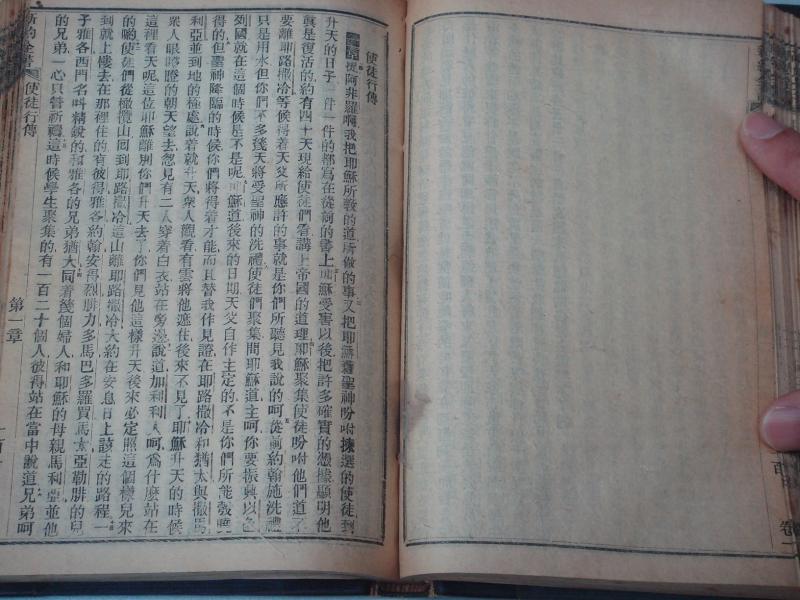 使徒行傳
阿非羅啊我把耶穌所教的道所做的事又把耶穌藉聖神吩咐揀選的使徒到
升天的日子一件一件的都寫在從前的書上耶穌受害以後把許多確實的憑據顯明他
眞是復活的約有四十天現給使徒們看講上帝國的道理耶穌聚集使徒吩咐他們道不
要離耶路撒冷等候得着天父所應許的事就是你們所聽見我說的呵從前約翰施洗禮
只是用水但你們不多幾天將受聖神的洗禮使徒們聚集問耶穌道主呵你要振興以色
列國就在這個時候是不是呢耶穌道後來的日期天父自作主定的不是你們所能彀曉
得的但聖神降臨的時候你們將得着才能而且替我作見證在耶路撒冷和猶太與撒馬
利亞並到地的極處說着就升天衆人觀看有雲將他遮住後來不見了耶穌升天的時候
衆人眼睜睜的朝天望去忽見有二人穿着白衣站在旁邊說道加利利人呵爲什麽站在
這裡看天呢這位耶穌離別你們升天去了你們見他這樣升天後來必定照這個樣兒來
的喲使徒們從橄欖山回到耶路撒冷這山離耶路撒冷大約在安息日上該走的路程一
到就上樓去在那裡住的有彼得雅各約翰安得烈腓力多馬巴多羅買馬太亞勒腓的兒
子雅各西門名叫精銳的和雅各的兄弟猶大同着幾個婦人和耶穌的母親馬利亞並他
的兄弟一心只管祈禱這時候學生聚集的有一百二十個人彼得站在當中說道兄弟呵
新約全書 使徒行傳 第一章